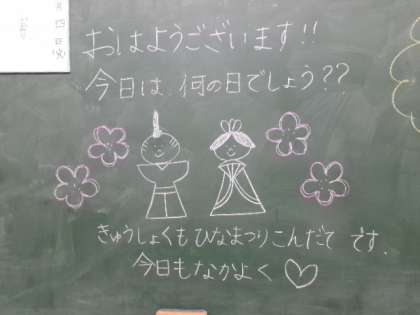 おはようございます!!
今日は 何の日でしょう??
きゅうしょくも ひなまつりこんだて です.
今日もなかよく♡